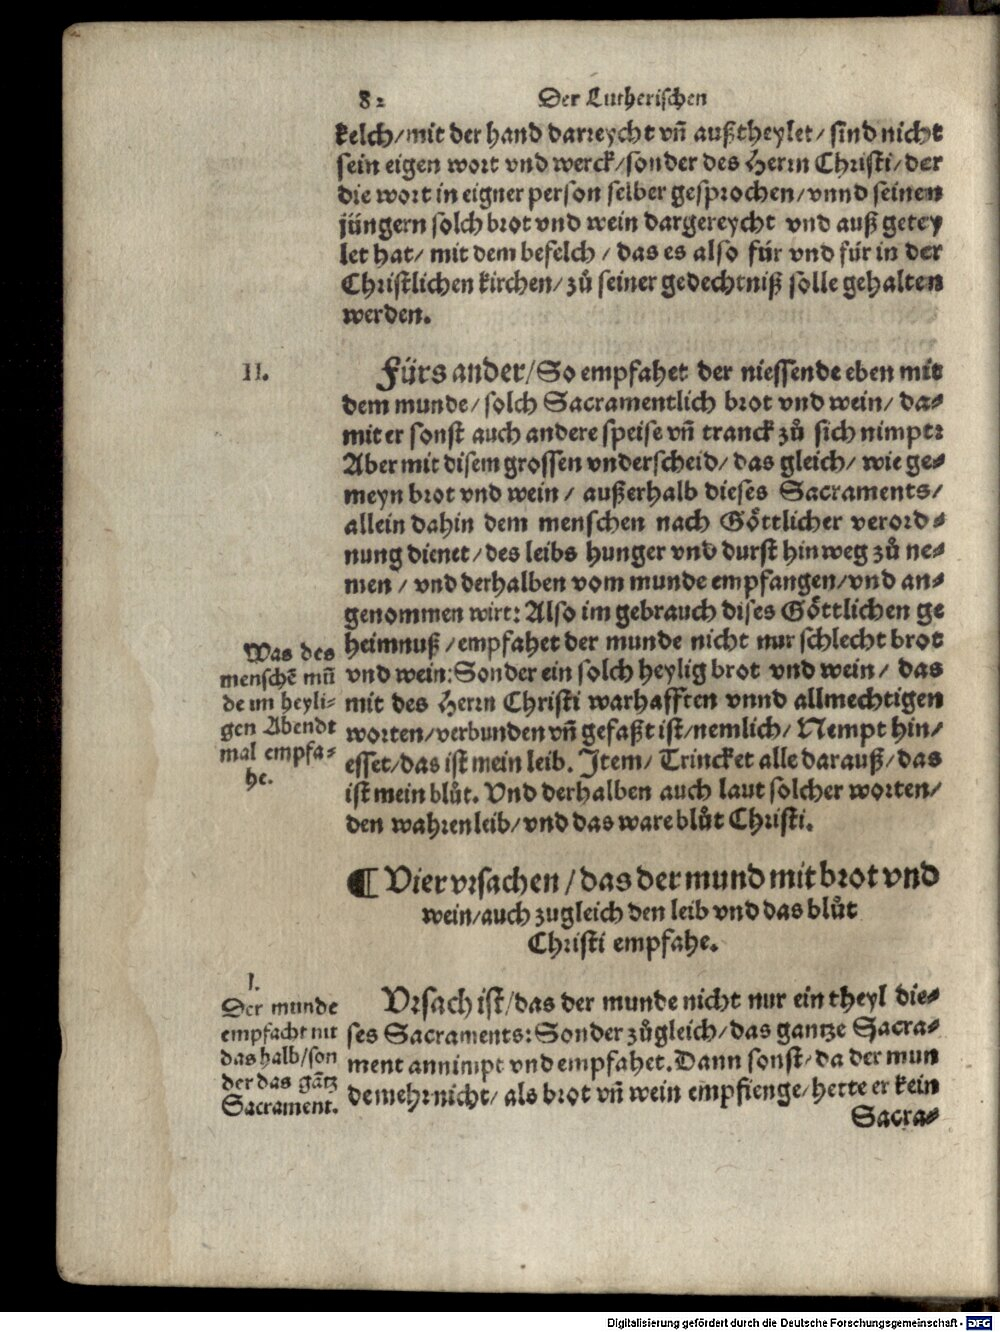 82 Der Lutherischen
kelch/mit der hand darreycht vñ außtheylet/ sind nicht
sein eigen wort vnd werck/sonder des Herrn Christi/der
die wort in eigner person selber gesprochen/vnnd seinen
jüngern solch brot vnd wein dargereycht vnd auß getey
let hat/ mit dem befelch / das es also für vnd für in der
Christlichen kirchen/ zů seiner gedechtniß solle gehalten
werden.
II.
Fürs ander/So empfahet der niessende eben mit
dem munde/ solch Sacramentlich brot vnd wein/ da-
mit er sonst auch andere speise vñ tranck zů sich nimpt:
Aber mit disem grossen vnderscheid/das gleich/ wie ge-
meyn brot vnd wein / außerhalb dieses Sacraments/
allein dahin dem menschen nach Göttlicher verord-
nung dienet/des leibs hunger vnd durst hinweg zů ne-
men / vnd derhalben vom munde empfangen/vnd an-
genommen wirt: Also im gebrauch dises Göttlichen ge
heimnuß /empfahet der munde nicht nur schlecht brot
vnd wein:Sonder ein solch heylig brot vnd wein/ das
mit des Herrn Christi warhafften vnnd allmechtigen
worten/verbunden vñ gefaßt ist/nemlich/ Nempt hin/
esset/das ist mein leib. Item/ Trincket alle darauß/das
ist mein blůt. Vnd derhalben auch laut solcher worten/
den wahren leib/vnd das ware blůt Christi.
Was des
menschẽ mũ
de im heyli-
gen Abendt
mal empfa-
he.
¶ Vier vrsachen / das der mund mit brot vnd
wein/auch zugleich den leib vnd das blůt
Christi empfahe.
I.
Der munde
empfacht nit
das halb/son
der das gãtz
Sacrament.
Vrsach ist/das der munde nicht nur ein theyl die-
ses Sacraments:Sonder zůgleich/das gantze Sacra-
ment annimpt vnd empfahet. Dann sonst/da der mun
de mehr nicht/ als brot vñ wein empfienge/hette er kein
Sacra-
Digitalisierung gefördert durch die Deutsche Forschungsgemeinschaft - DFG